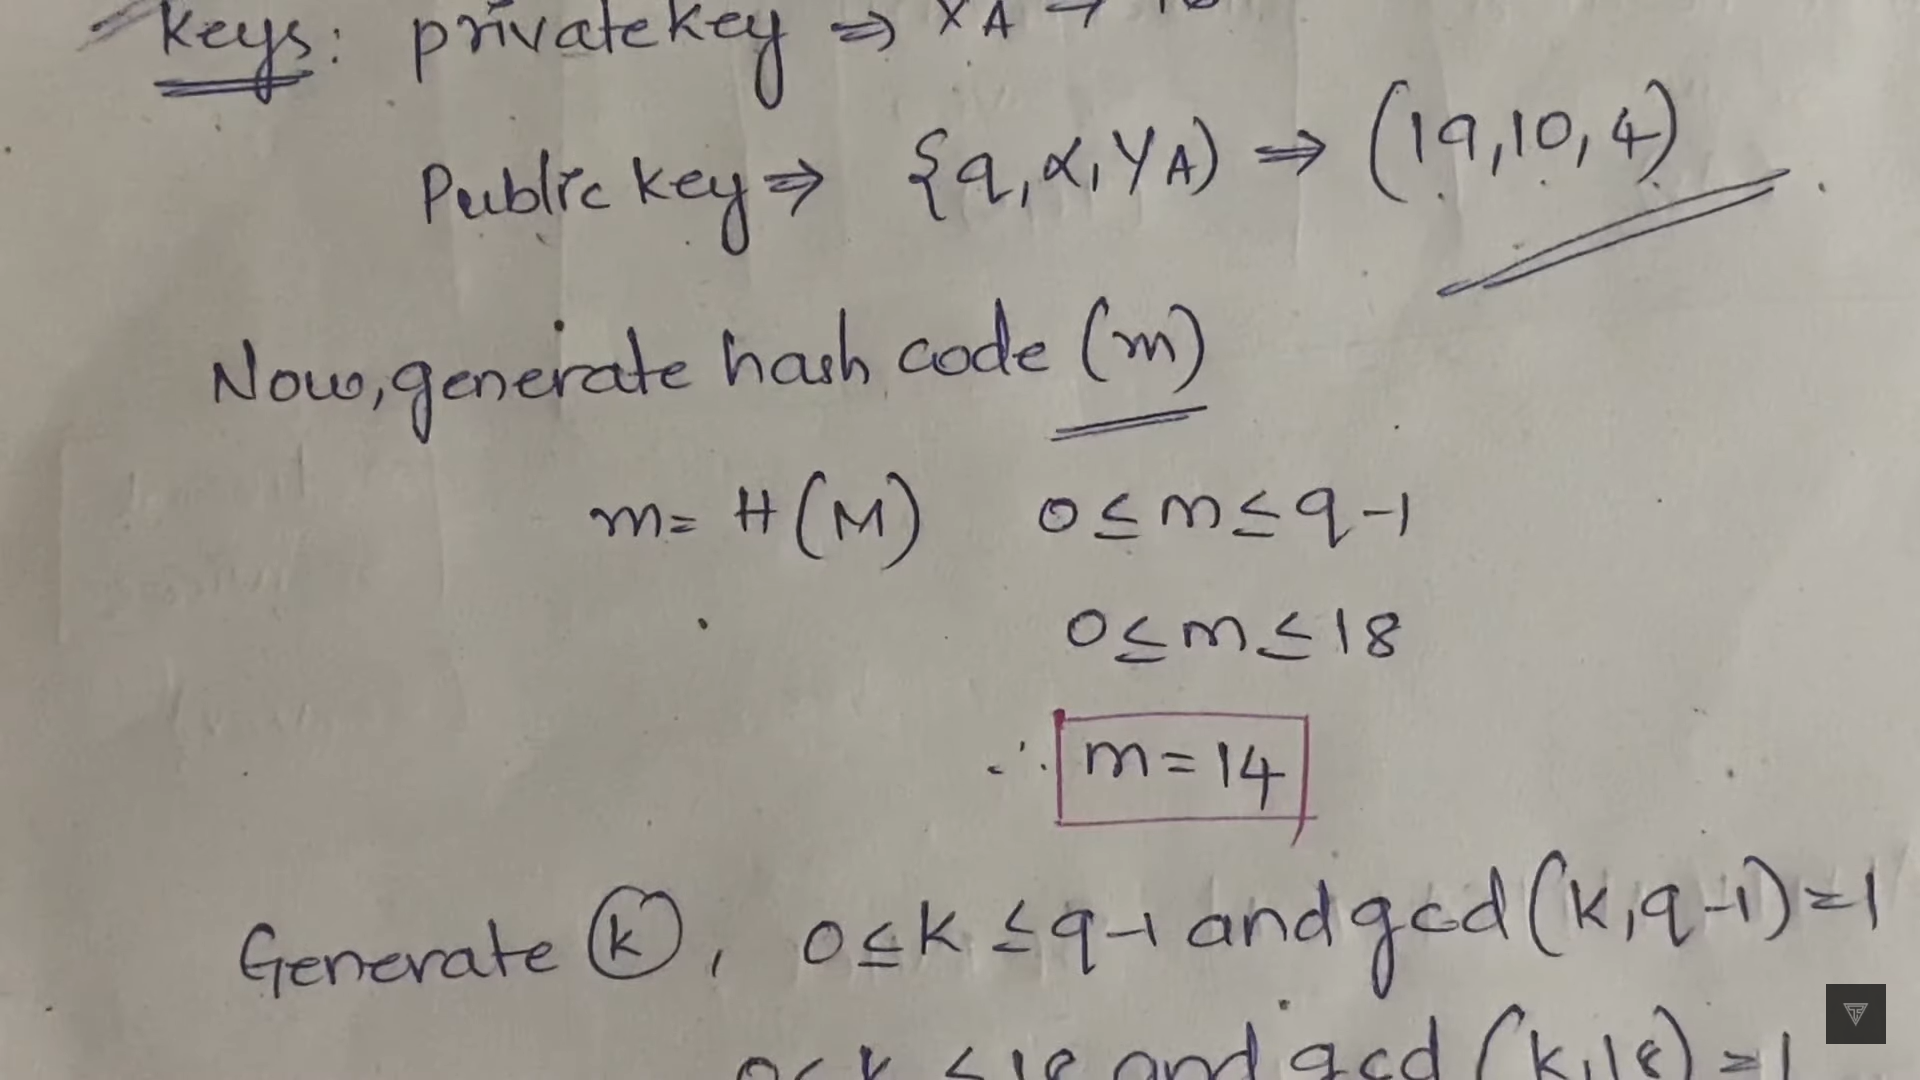 Keys: private key ⇒ XA →
Public key ⇒ {q, α, YA) ⇒ (19, 10, 4)
Now, generate hash code (m)
m = H(M) 0 ≤ m ≤ q-1
0 ≤ m ≤ 18
∴ m = 14
Generate k, 0 ≤ k ≤ q-1 and gcd (k, q-1) = 1
0 ≤ k ≤ 18 and gcd (k, 18) = 1